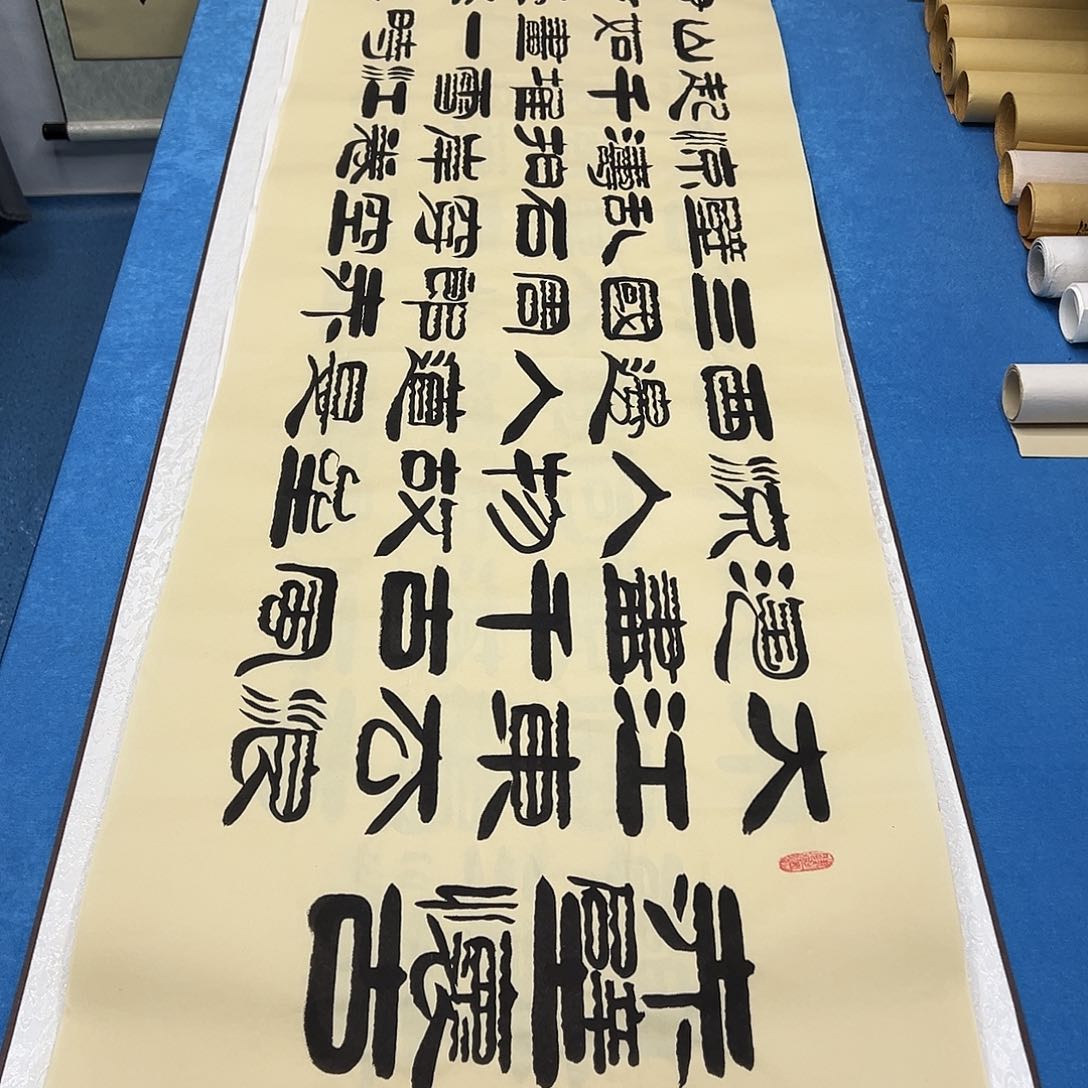 赤壁懷古
大江東去浪
淘盡千古風
流人物故壘
西邊人道是
三國周郎赤
壁亂石穿空
涼濤拍岸卷
起千堆雪江
山如畫一時